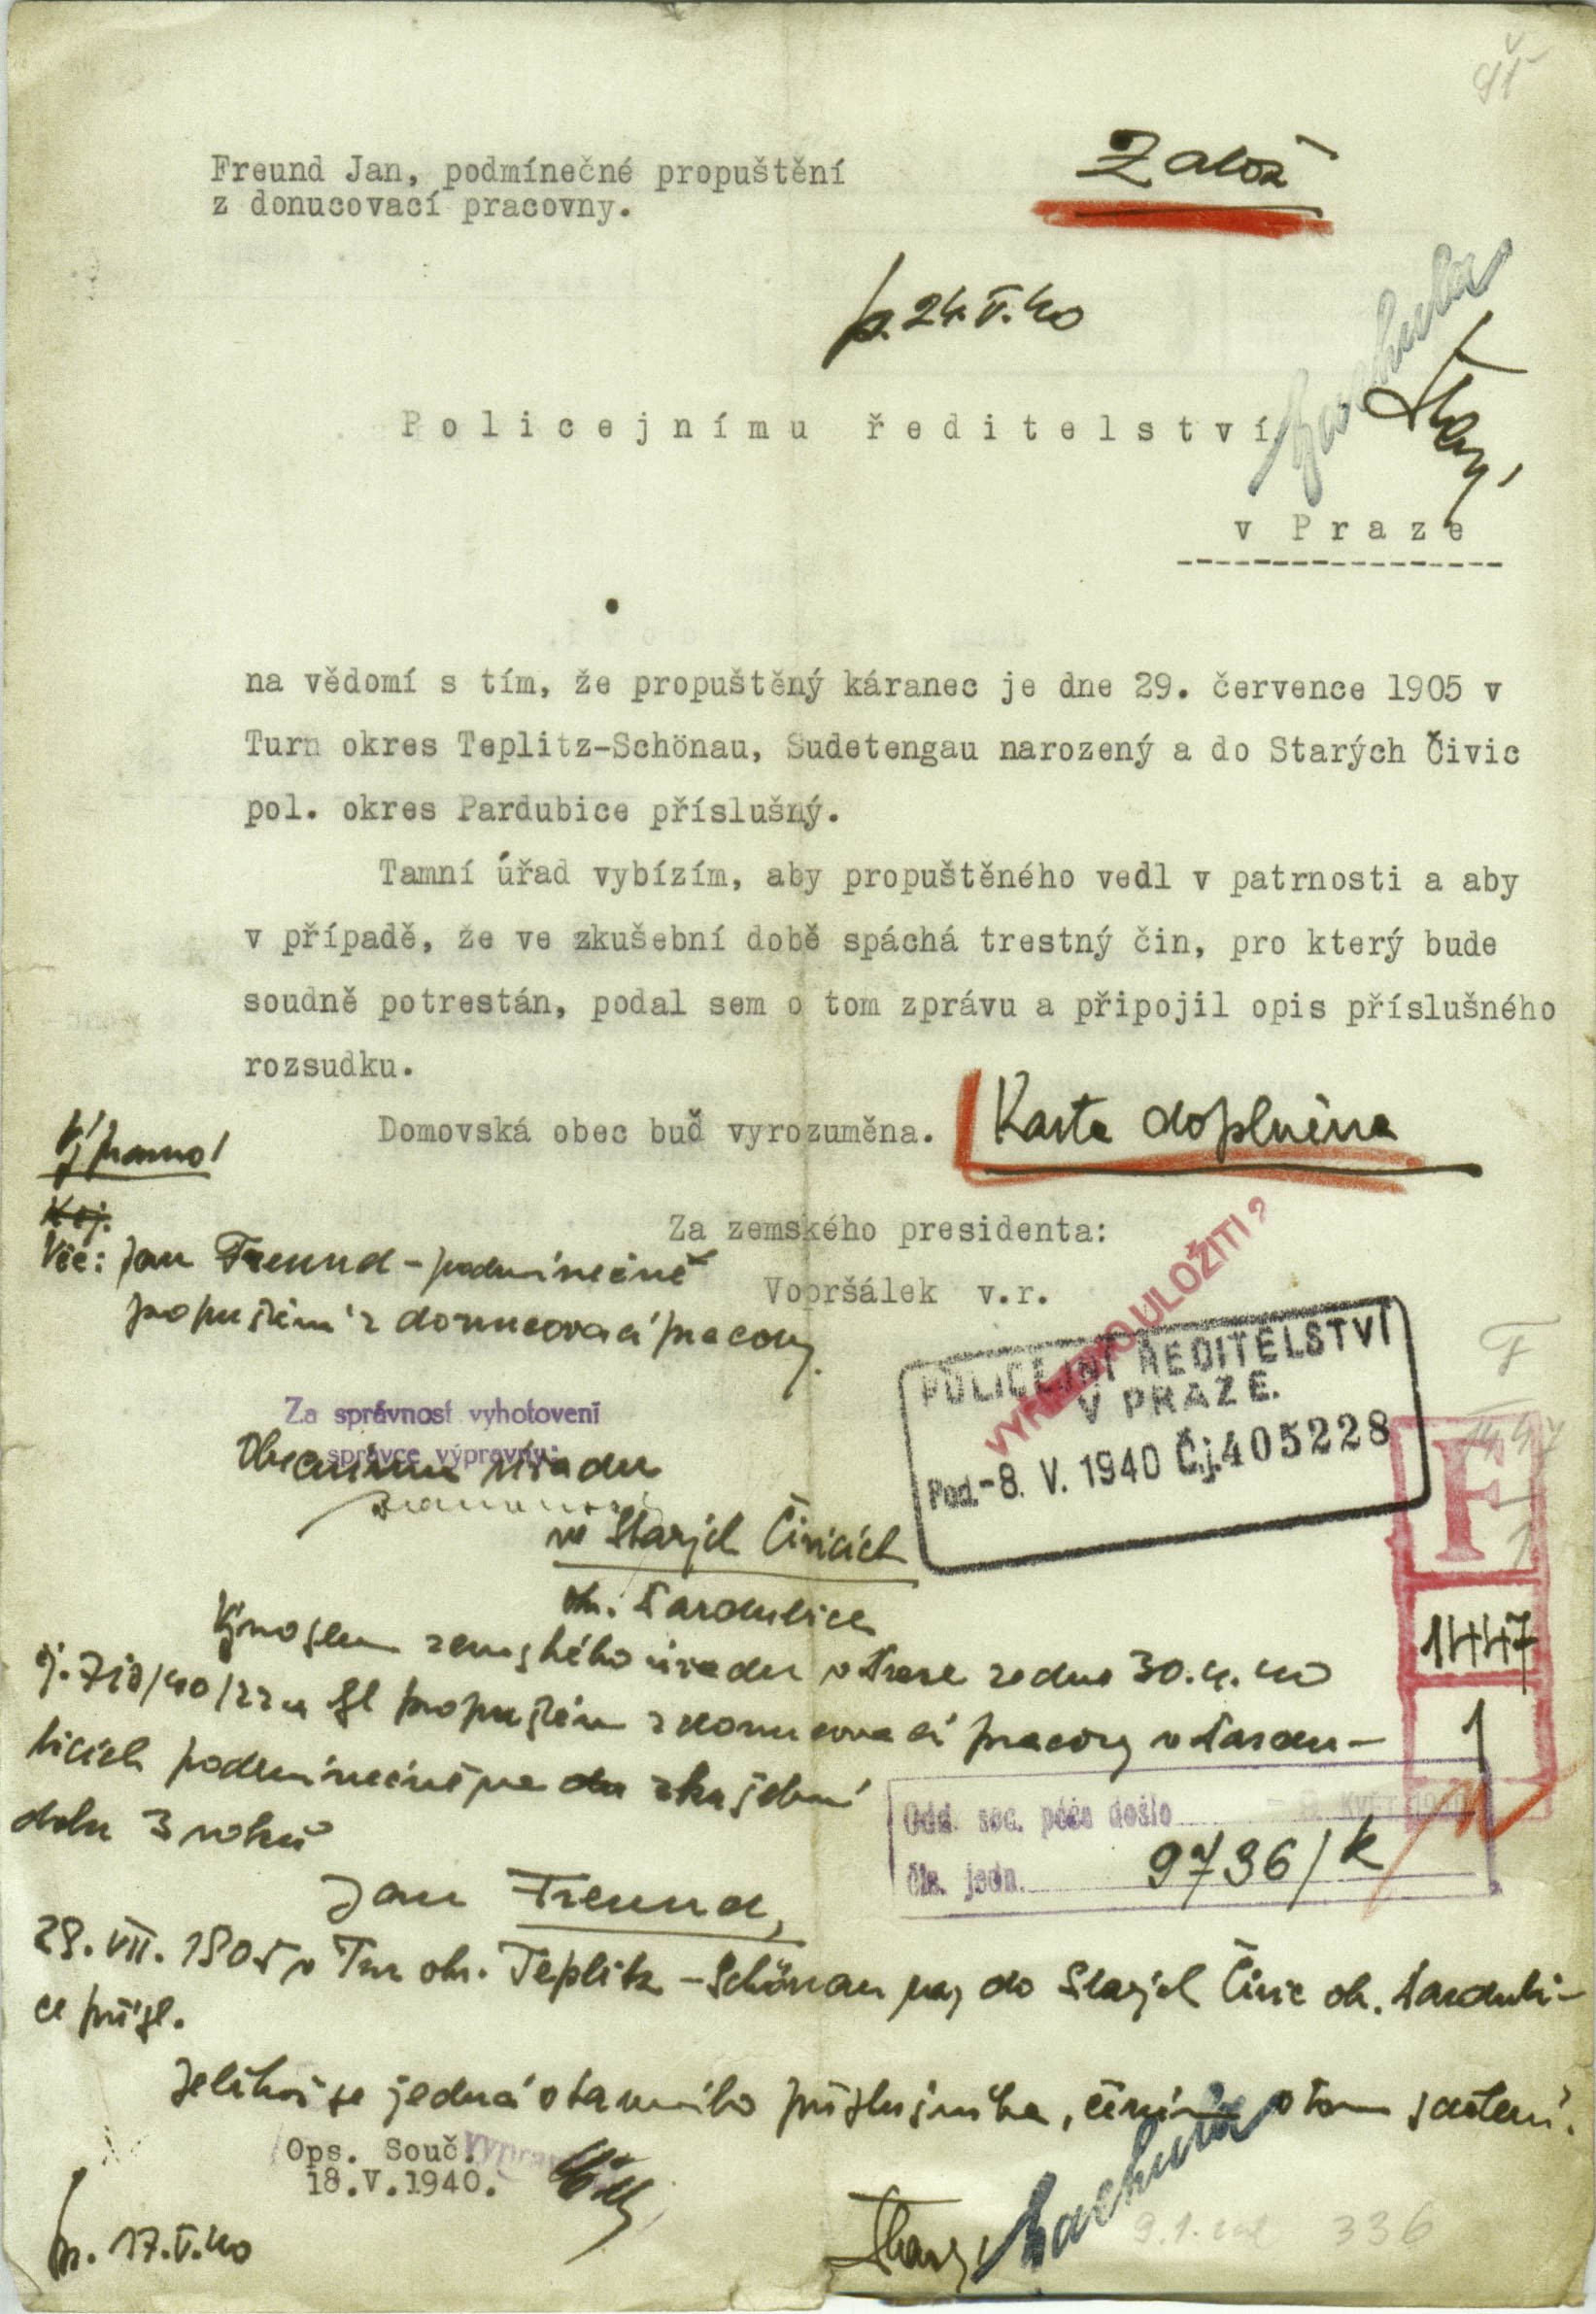 Freund Jan, podmínečné propuštění
z donucovací pracovny.
Založ
p. 24.V.40
Policejnímu ředitelství
v Praze
na vědomí s tím, že propuštěný káranec je dne 29. července 1905 v
Turn okres Teplitz-Schönau, Sudetengau narozený a do Starých Čivic
pol. okres Pardubice příslušný.
Tamní úřad vybízím, aby propuštěného vedl v patrnosti a aby
v případě, že ve zkušební době spáchá trestný čin, pro který bude
soudně potrestán, podal sem o tom zprávu a připojil opis příslušného
rozsudku.
Domovská obec buď vyrozuměna.
Karta doplněna
Za zemského presidenta:
Vopršálek v.r.
Věc: Jan Freund - podmínečné
propuštění z donucovací pracovny.
Za správnost vyhotovení
správce výpravny:
Obecnímu úřadu
ve Starých Čivicích
ok. Pardubice
POLICEJNÍ ŘEDITELSTVÍ
V PRAZE.
Pod. -8. V. 1940 Čj. 405228
ULOŽITI?
F
1447
1
Výnosem zemského úřadu v Praze ze dne 30.4.40
propuštěn z donucovací pracovny v Pardu-
bicích podmínečně na zkušební
dobu 3 roků
Odd. soc. péče došlo
Čís. jedn. 9736/k
Jan Freund,
29. VII. 1905 v Turn ok. Teplitz-Schönau nar, do Starých Čivic ok. Pardubi-
ce přísl.
Jelikož se jedná o tamního příslušníka, činím o tom sdělení.
Ops. Souč.
18.V.1940.
p. 17.V.40
336